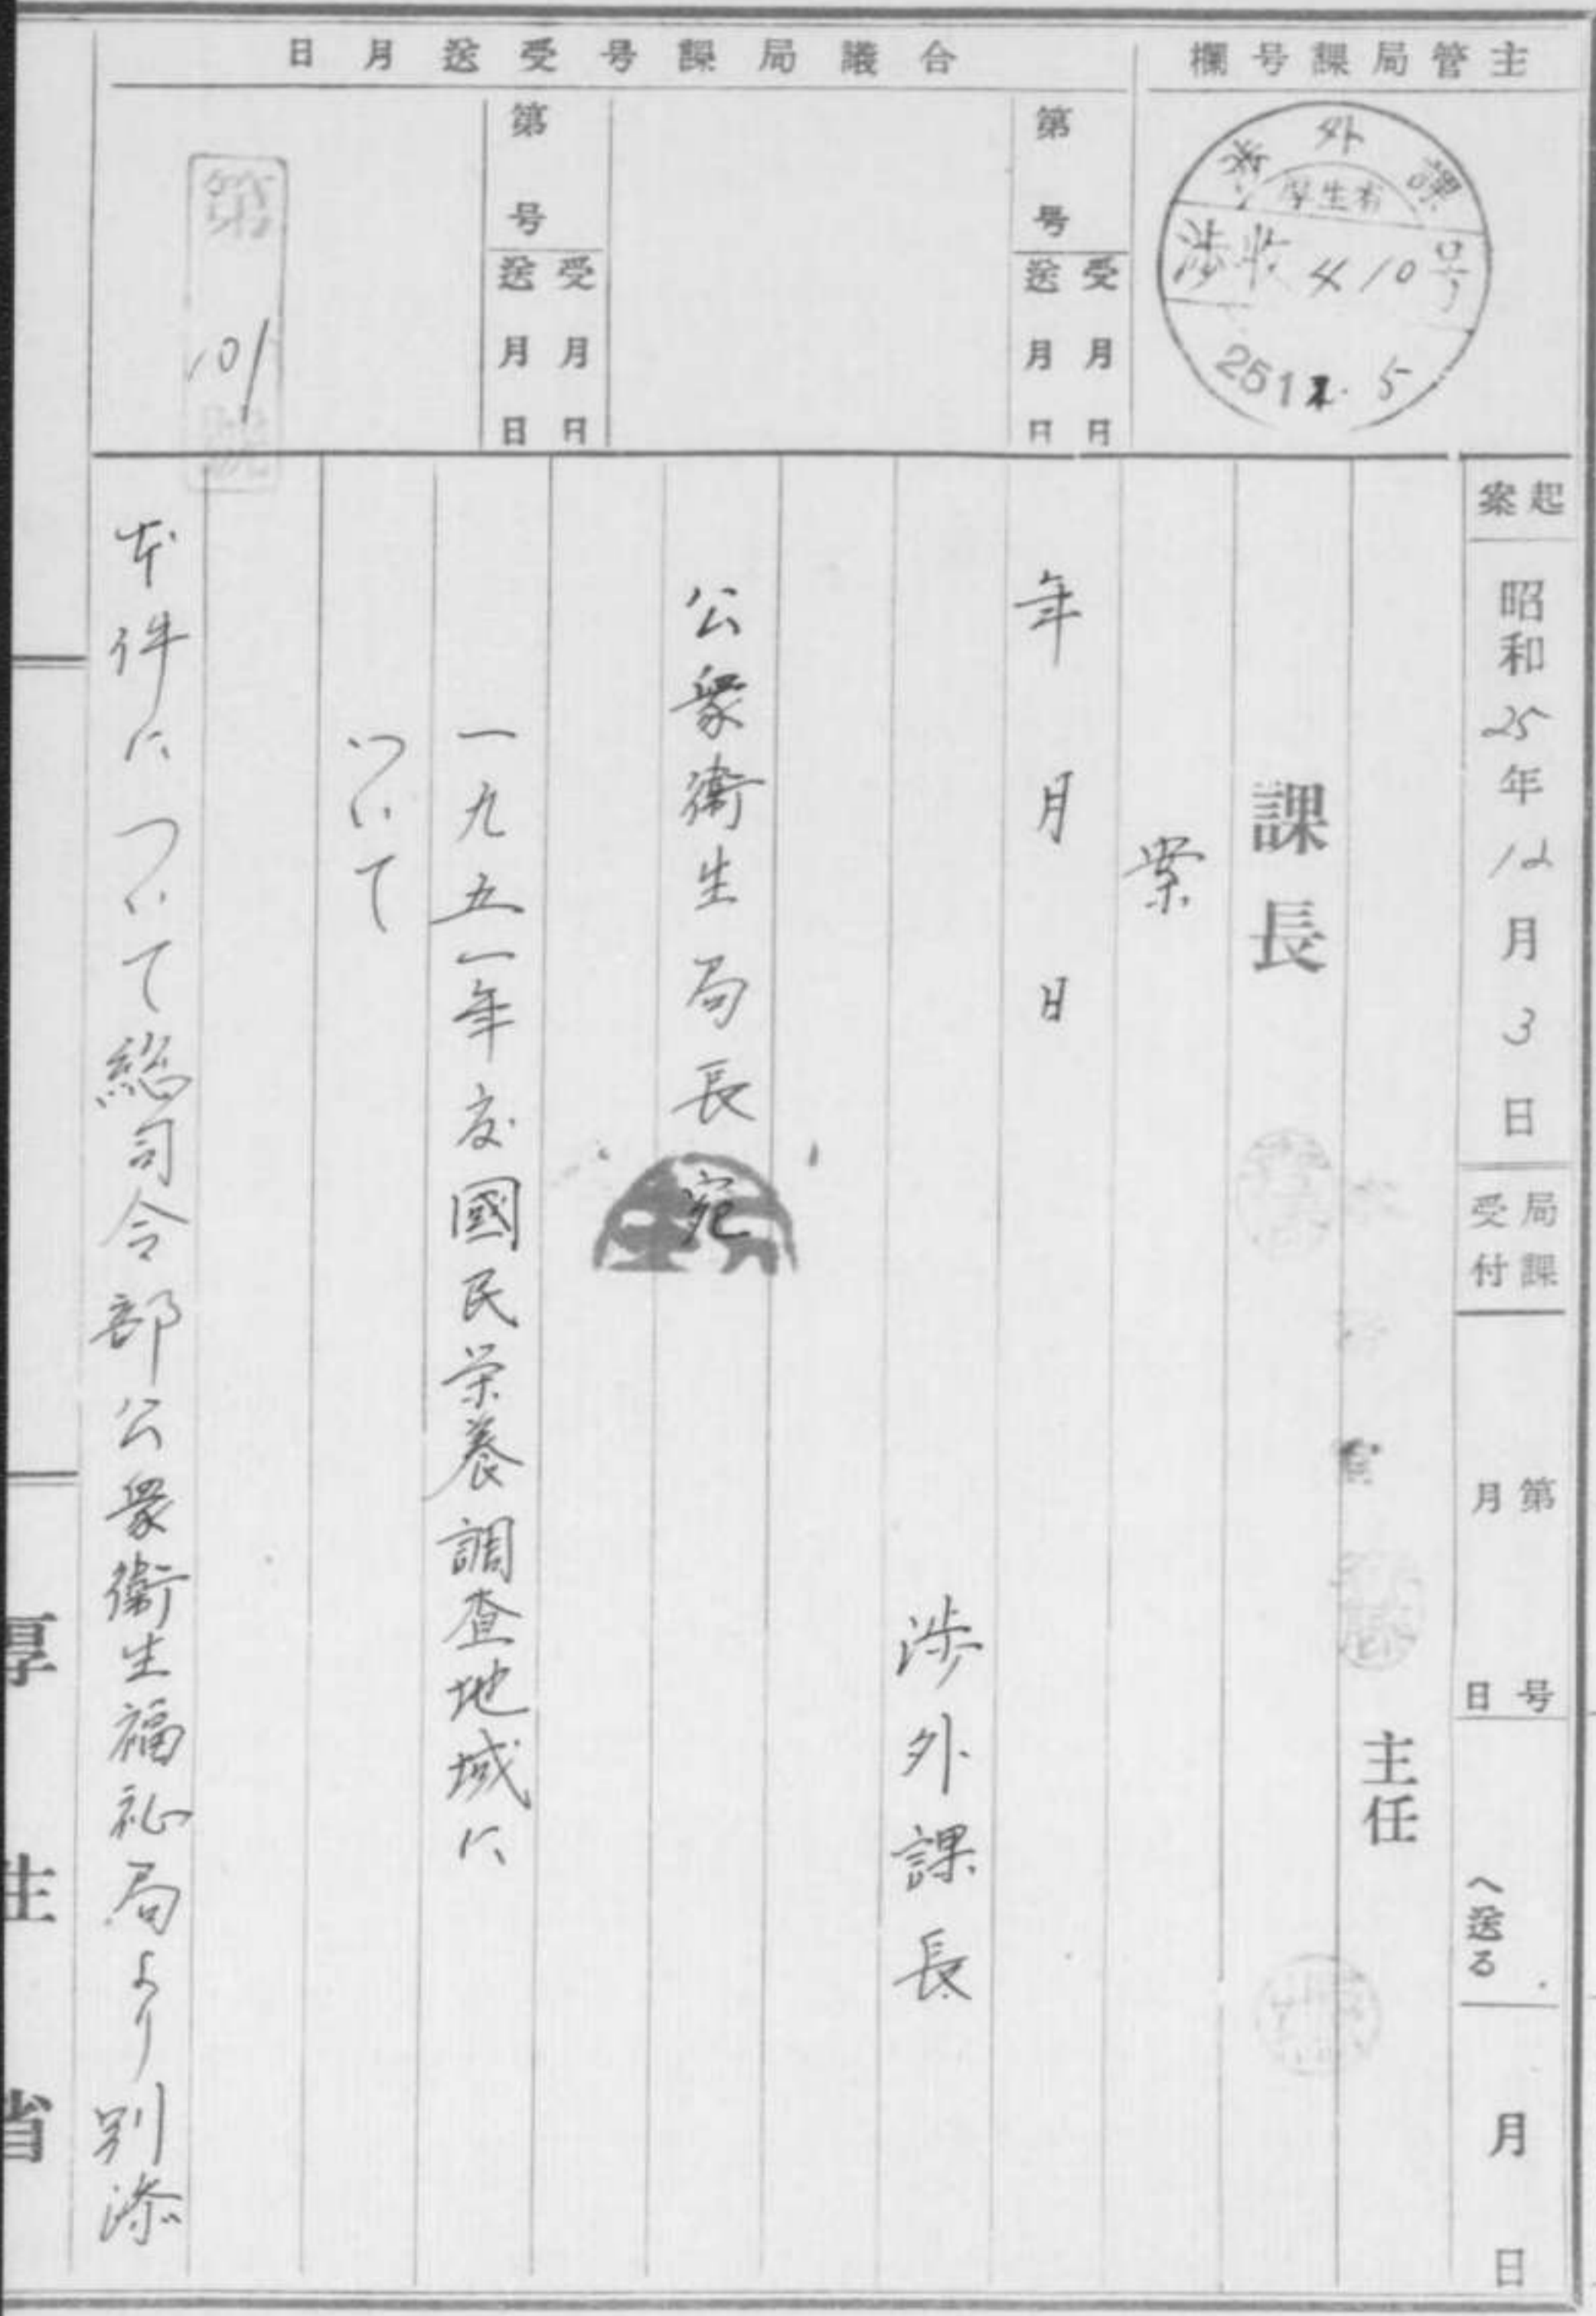 主管局課号欄
合議局課号受送月日
渉外課
厚生省
渉収410号
25 12. 5
第 号
受 月 日
送 月 日
第 号
受 月 日
送 月 日
第101号
起案
昭和25年12月3日
局課受付
第 号
月 日
へ送る
月 日
主任
課長
案
年 月 日
渉外課長
公衆衛生局長宛
一九五一年度國民栄養調査地域に
ついて
本件について総司令部公衆衛生福祉局より別添
厚生省